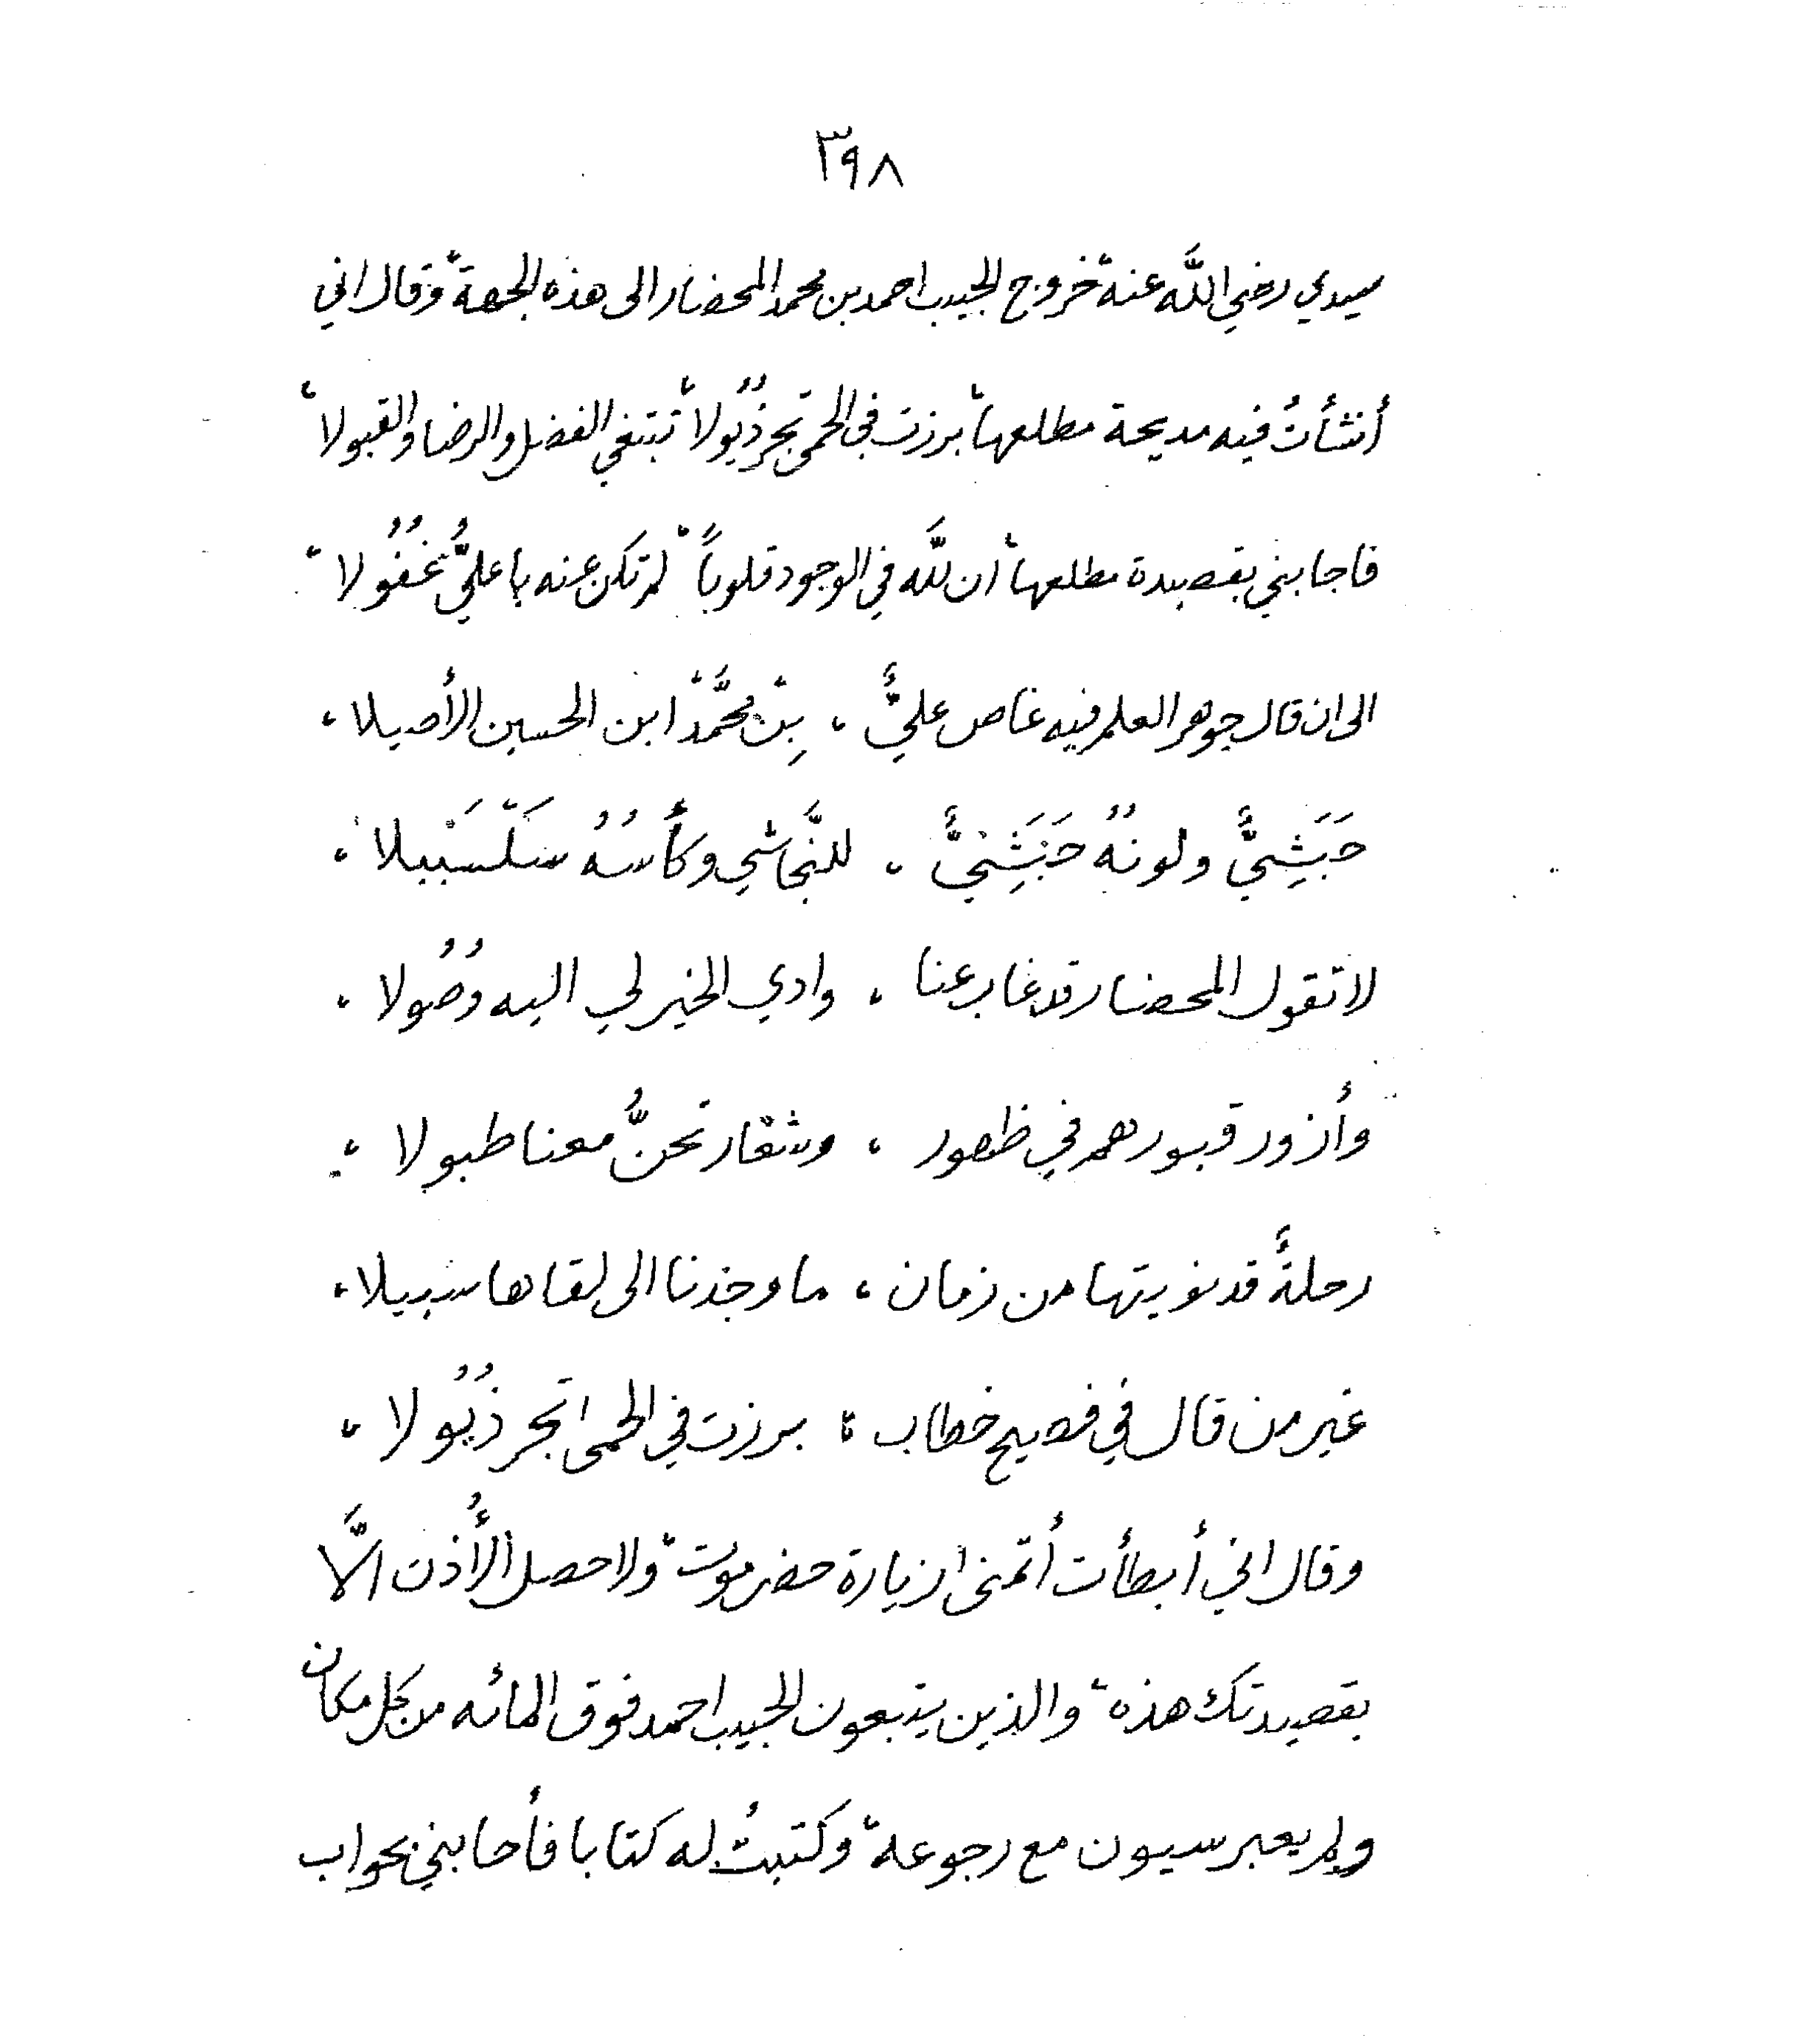 ٣٩٨
سيدي رضي اللَّه عنه، خروج الحبيب احمد بن محمد المحضار الى هذه الجهة، وقال اني
أنشأتُ فيه مديحة مطلعها، برزت في الحمى تجر ذُيُولا، تبتغي الفضل والرضا والقبولا،
فاجابني بقصيدة مطلعها، ان للَّه في الوجود قلوباً، لم تكن عنه يا عليٌّ غُفُولا،
الى ان قال جوهر العلم فيه غاص عليٌّ ، بِنْ محَّمدْ ابن الحسين الأصيلا ،
حَبَشِيٌّ ولونهُ حَبَشِيٌّ ، للنَّجاشي وكأسُهُ سَلْسَبْيلا ،
لا تقول المحضار قد غاب عنا ، وادي الخير لي اليه وُصُولا ،
وأزور قبورهم في ظهور ، وشعار تحنُّ معنا طبولا ،
رحلةٌ قد نويتها من زمان ، ما وجدنا الى لقاها سبيلا ،
غير من قال في فصيح خطاب ، برزت في الحمى تجر ذُيُولا ،
وقال اني أبطأت أتمنى زيارة حضرموت، ولا حصل الأُذن الَّا
بقصيدتك هذه، والذين يتبعون الحبيب احمد فوق المائه من كل مكان
ولم يعبر سيون مع رجوعه، وكتبتُ له كتابا فأجابني بجواب